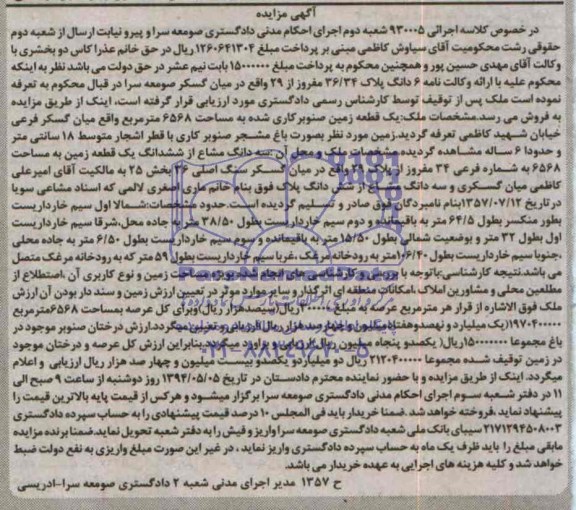 آگهی مزایده
در خصوص کلاسه اجرائی ۹۳۰۰۰۵ شعبه دوم اجرای احکام مدنی دادگستری صومعه سرا و پیرو نیابت ارسال از شعبه دوم
حقوقی رشت محکومیت آقای سیاوش کاظمی مبنی بر پرداخت مبلغ ۱۲۶۰۶۴۱۳۰۴ ریال در حق خانم عذرا کاس دو بخشری با
وکالت آقای مهدی حسین پور و همچنین محکوم به پرداخت مبلغ ۱۵۰۰۰۰۰۰ بابت نیم عشر در حق دولت می باشد نظر به اینکه
محکوم علیه با ارائه وکالت نامه ۶ دانگ پلاک ۳۶/۳۴ مفروز از ۲۹ واقع در میان گسکر صومعه سرا در قبال محکوم به تعرفه
نموده است ملک پس از توقیف توسط کارشناس رسمی دادگستری مورد ارزیابی قرار گرفته است، اینک از طریق مزایده
به فروش می رسد.مشخصات ملک:یک قطعه زمین صنوبر کاری شده به مساحت ۶۵۶۸ مترمربع واقع میان گسکر فرعی
خیابان شهید کاظمی تعرفه گردید.زمین مورد نظر بصورت باغ مشجر صنوبر کاری با قطر اشجار متوسط ۱۸ سانتی متر
و حدودا ۶ ساله مشاهده گردیده مشخصات ملک و محل آن :سه دانگ مشاع از ششدانگ یک قطعه زمین به مساحت
۶۵۶۸ به شماره فرعی ۳۴ مفروز از پلاک ۲۹ واقع در میان گسکر سنگ اصلی ۳۶ بخش ۲۵ به مالکیت آقای امیرعلی
کاظمی میان گسکری و سه دانگ مشاع از شش دانگ پلاک فوق بنام خانم ماری اصغری لالمی که اسناد مشاعی سویا
در تاریخ ۱۳۵۷/۰۷/۱۲ بنام نامبردگان فوق صادر و تسلیم گردیده است.حدود مشخصات:شمالا اول سیم خارداریست
بطور منکسر بطول ۶۴/۵ متر به باقیمانده و دوم سیم خارداریست بطول ۳۸/۵۰ متر به جاده محل،شرقا سیم خارداریست
اول بطول ۳۲ متر و بوضعیت شمالی بطول ۱۵/۵۰ متر به باقیمانده و سوم سیم خارداریست بطول ۶/۵۰ متر به جاده محلی
،جنوبا سیم خارداریست بطول ۱۰۶/۴۰متر به رودخانه مرغک ،غربا سیم خارداریست بطول ۵۹ متر که به رودخانه مرغک متصل
می باشد.نتیجه کارشناسی:باتوجه با پرسش و کارشناسی های انجام شده بویژه مساحت زمین و نوع کاربری آن ،استطلاع از
مطلعین محلی و مشاورین املاک ،امکانات منطقه ای اثر گذار و سایر موارد موثر در تعیین ارزش زمین و سند دار بودن آن ارزش
ملک فوق الاشاره از قرار هر مترمربع عرصه به مبلغ ۳۰۰۰۰۰ریال(سیصدهزار ریال)وبرای کل عرصه بمساحت ۶۵۶۸مترمربع
۱۹۷۰۴۰۰۰۰۰(یک میلیارد و نهصدوهفتادمیلیون و چهارصدهزار ریال)ارزیابی و تعیین میگردد.ارزش درختان صنوبر موجود در
باغ مجموعا ۱۵۰۰۰۰۰۰۰ریال( یکصدو پنجاه میلیون ریال)ارزیابی و برآورد میگردد.بنابراین ارزش کل عرصه و درختان موجود
در زمین توقیف شده مجموعا ۲۱۲۰۴۰۰۰۰۰ ریال دو میلیاردو یکصدو بیست میلیون و چهار صد هزار ریال ارزیابی و اعلام
میگردد. اینک از طریق مزایده و با حضور نماینده محترم دادستان در تاریخ ۱۳۹۴/۰۵/۰۵ روز دوشنبه از ساعت ۹ صبح الی
۱۱ در دفتر شعبه سوم اجرای احکام مدنی دادگستری صومعه سرا برگزار میشود و هر کس از قیمت پایه بالاترین قیمت را
پیشنهاد نماید ،فروخته خواهد شد .ضمنا خریدار باید فی المجلس ۱۰ درصد قیمت پیشنهادی را به حساب سپرده دادگستری
۲۱۷۱۲۹۴۵۰۸۰۰۳ سیبای بانک ملی شعبه دادگستری صومعه سرا واریز و فیش را به دفتر شعبه تحویل نماید.ضمنا برنده مزایده
مابقی مبلغ را باید ظرف یک ماه به حساب سپرده دادگستری واریز نماید ، در غیر این صورت مبلغ واریزی به نفع دولت ضبط
خواهد شد و کلیه هزینه های اجرایی به عهده خریدار می باشد.
ح ۱۳۵۷ مدیر اجرای مدنی شعبه ۲ دادگستری صومعه سرا-ادریسی